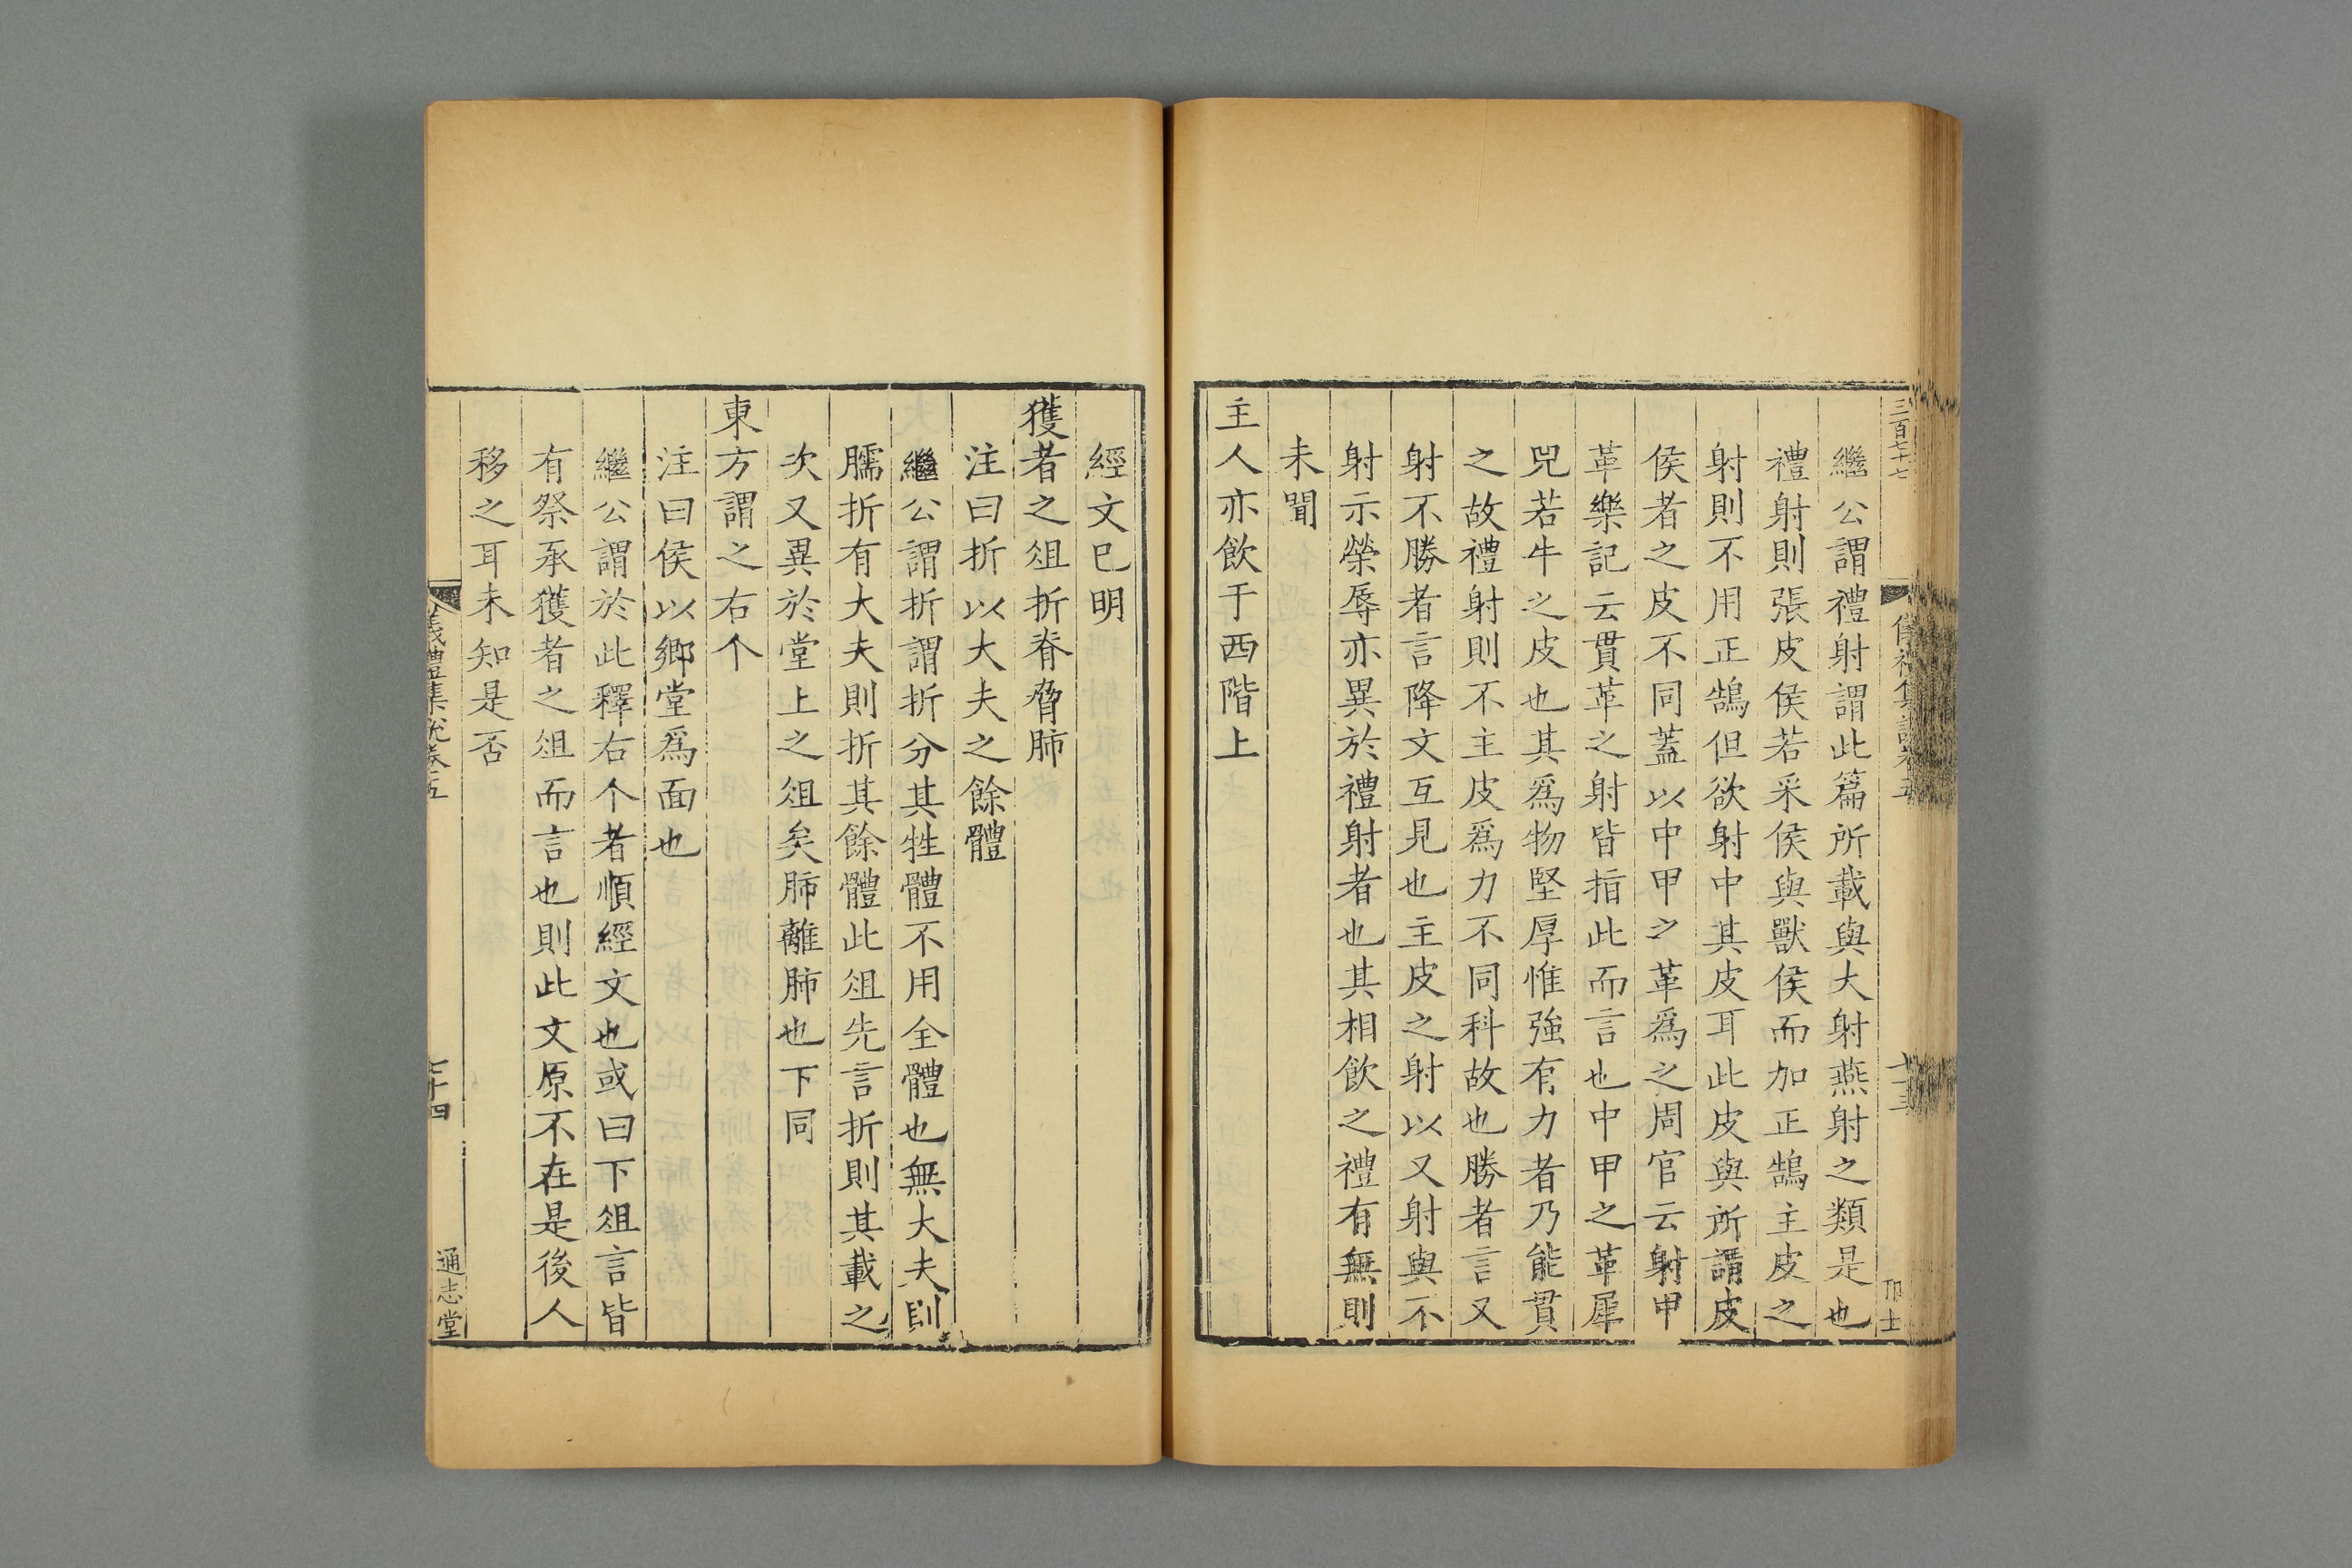 三百七十七
繼公謂禮射謂此篇所載與大射燕射之類是也
禮射則張皮侯若采侯與獸侯而加正鵠主皮之
射則不用正鵠但欲射中其皮耳此皮與所謂皮
侯者之皮不同蓋以中甲之革爲之周官云射甲
革樂記云貫革之射皆指此而言也中甲之革犀
兕若牛之皮也其爲物堅厚惟強有力者乃能貫
之故禮射則不主皮爲力不同科故也勝者言又
射不勝者言降文互見也主皮之射以又射與不
射示榮辱亦異於禮射者也其相飲之禮有無則
未聞
主人亦飲于西階上
經文已明
獲者之俎折脊脅肺
注曰折以大夫之餘體
繼公謂折謂折分其牲體不用全體也無大夫則
臑折有大夫則折其餘體此俎先言折則其載之
次又異於堂上之俎矣肺離肺也下同
東方謂之右个
注曰侯以鄉堂爲面也
繼公謂於此釋右个者順經文也或曰下俎言皆
有祭承獲者之俎而言也則此文原不在是後人
移之耳未知是否
儀禮集說卷五
七十四
通志堂